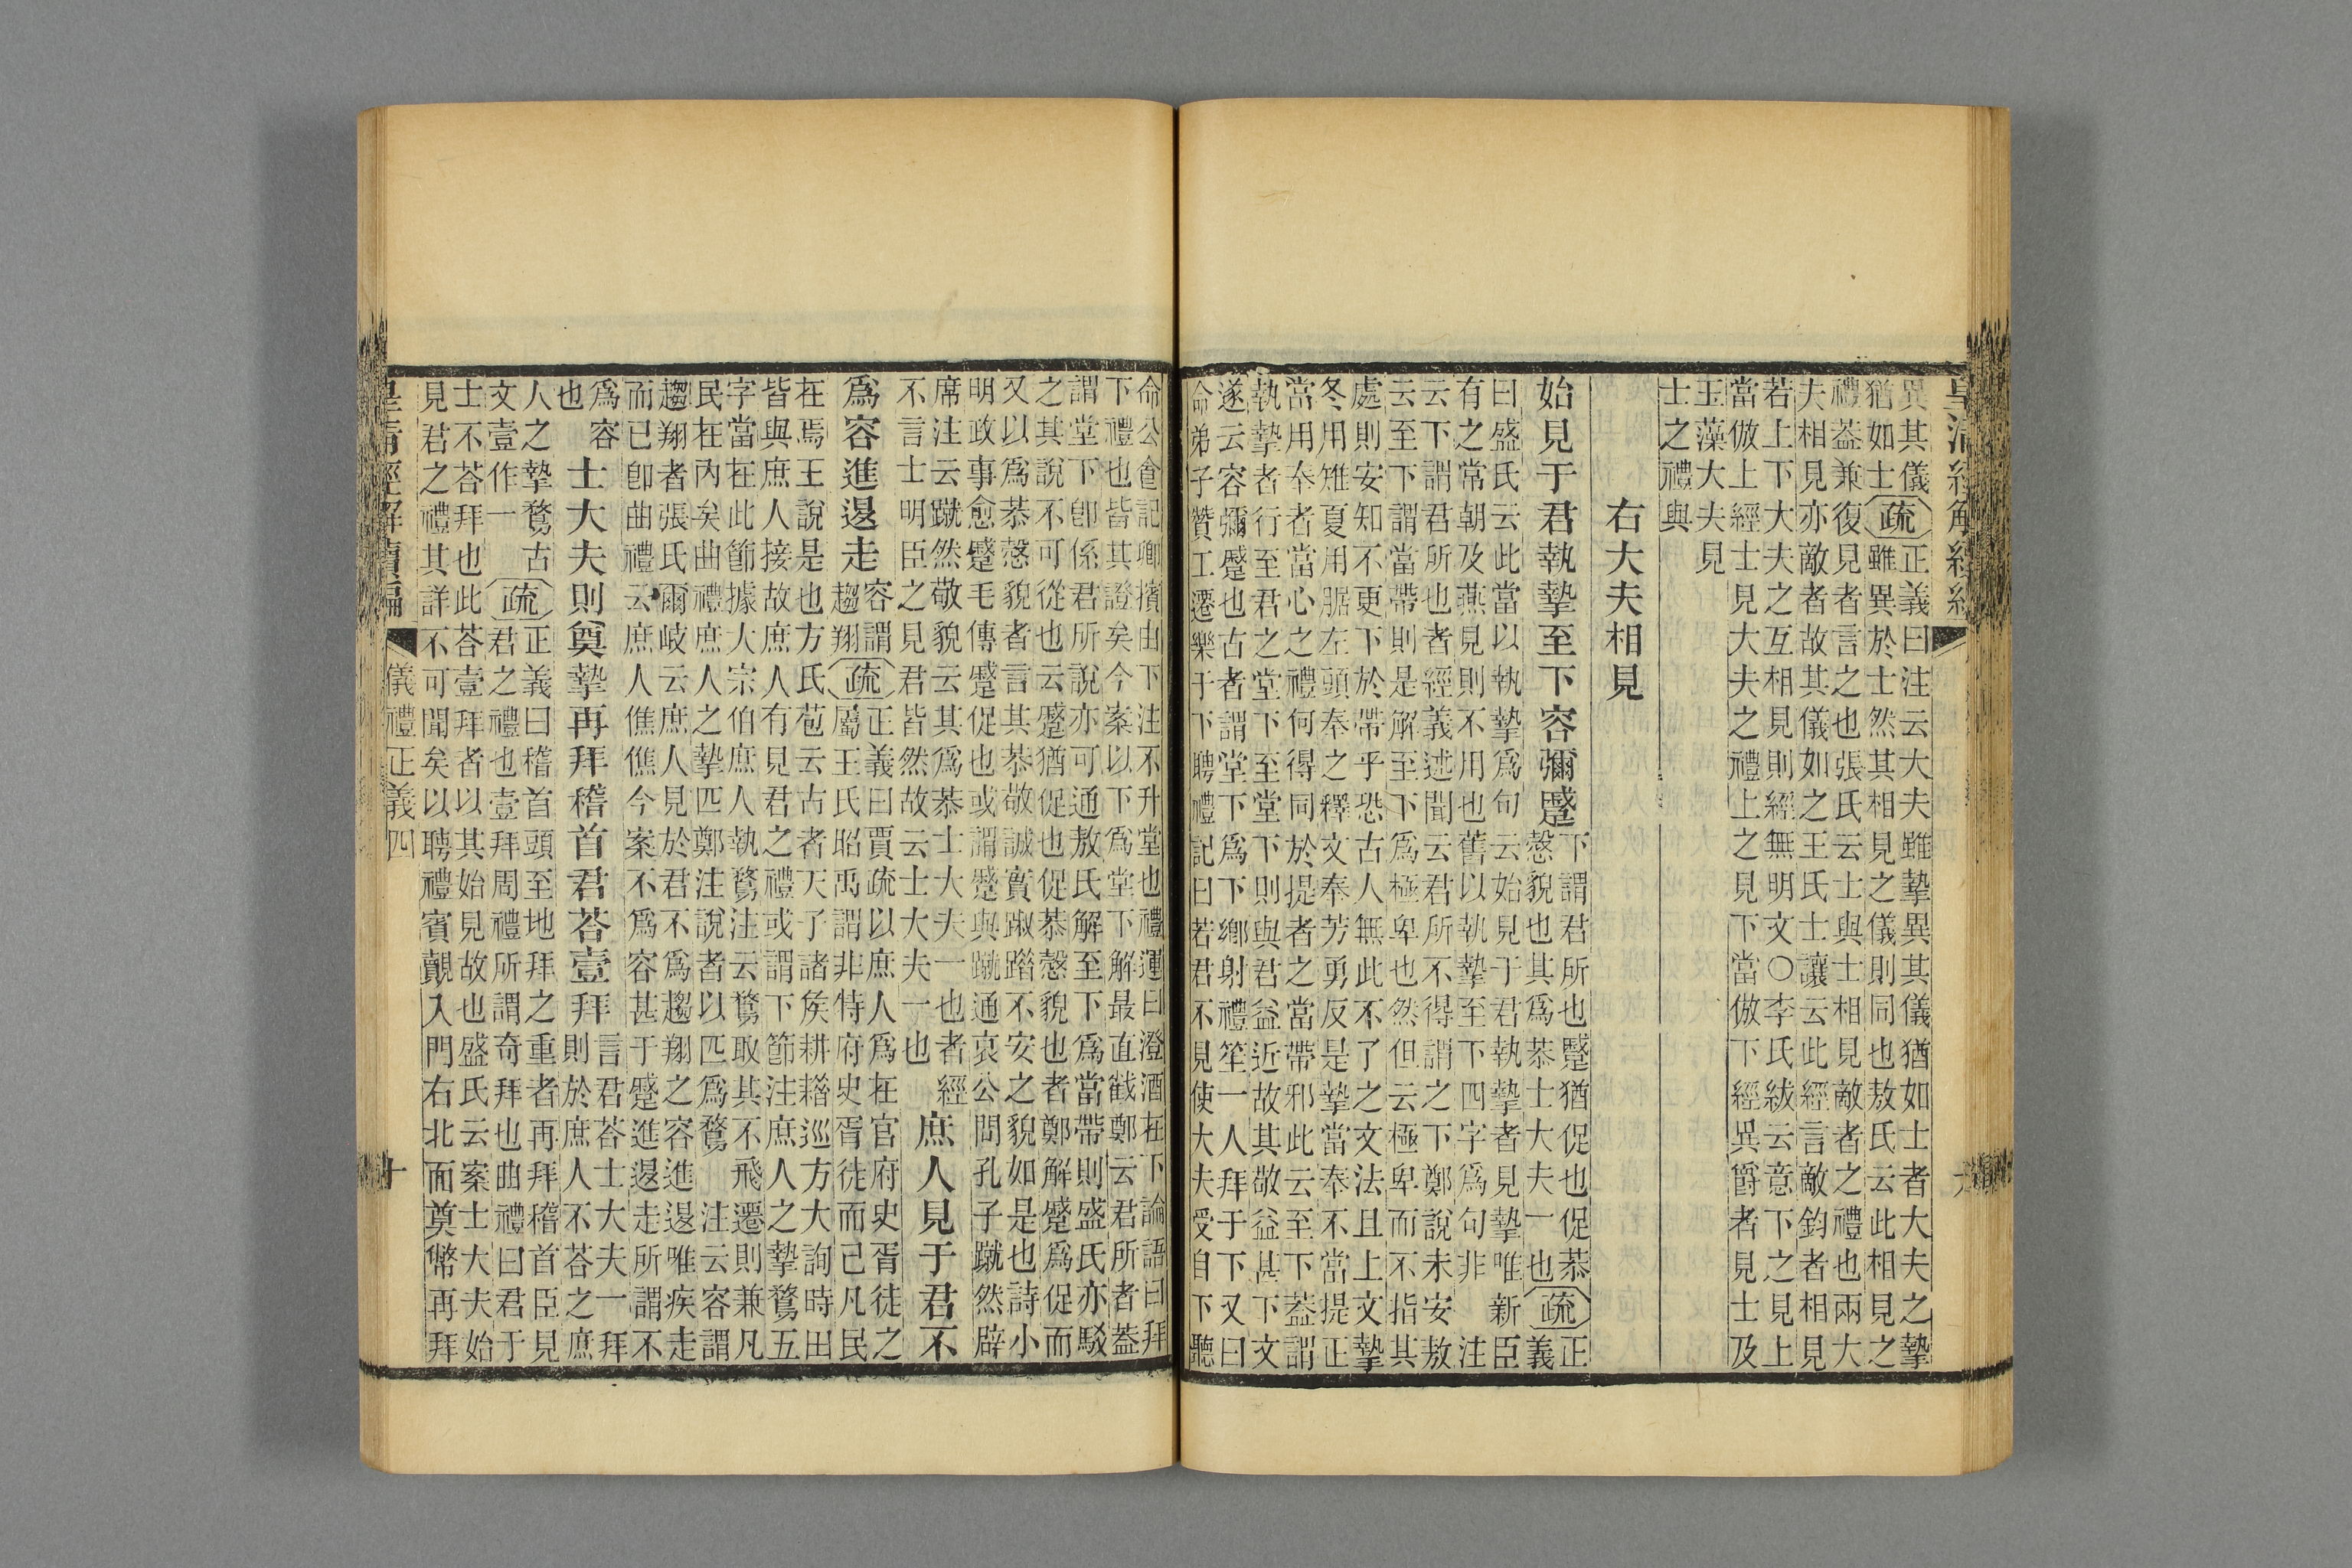 異其儀疏正義曰注云大夫雖摯異其儀猶如士者大夫之摯
猶如士 雖異於士然其相見之儀則同也敖氏云此相見之
禮葢兼復見者言之也張氏云士與士相見敵者之禮也兩大
夫相見亦敵者故其儀如之王氏士讓云此經言敵鈞者相見
若上下大夫之互相見則經無明文○李氏紱云意下之見上
當倣上經士見大夫之禮上之見下當倣下經異爵者見士及
玉藻大夫見
士之禮與
右大夫相見
始見于君執摯至下容彌蹙
下謂君所也蹙猶促也促恭
慤貌也其爲恭士大夫一也疏正
義
曰盛氏云此當以執摯爲句云始見于君執摯者見摯唯新臣
有之常朝及燕見則不用也舊以執摯至下四字爲句非 注
云下謂君所也者經義述聞云君所不得謂之下鄭說未安敖
云至下謂當帶則是解至下爲極卑也然但云極卑而不指其
處則安知不更下於帶乎恐古人無此不了之文法且上文摯
冬用雉夏用腒左頭奉之釋文奉芳勇反是摯當奉不當提正
當用奉者當心之禮何得同於提者之當帶邪此云至下葢謂
執摯者行至君之堂下至堂下則與君益近故其敬益甚下文
遂云容彌蹙也古者謂堂下爲下鄉射禮笙一人拜于下又曰
命弟子贊工遷樂于下聘禮記曰若君不見使大夫受自下聽
命公食記卿擯由下注不升堂也禮運曰澄酒在下論語曰拜
下禮也皆其證矣今案以下爲堂下解最直截鄭云君所者葢
謂堂下卽係君所說亦可通敖氏解至下爲當帶則盛氏亦駁
之其說不可從也云蹙猶促也促恭慤貌也者鄭解蹙爲促而
又以爲恭慤貌者言其恭敬誠實踧踖不安之貌如是也詩小
明政事愈蹙毛傳蹙促也或謂蹙與蹴通哀公問孔子蹴然辟
席注云蹴然敬貌云其爲恭士大夫一也者經
不言士明臣之見君皆然故云士大夫一也
庶人見于君不
爲容進退走
容謂
趨翔疏正義曰賈疏以庶人爲在官府史胥徒之
屬王氏昭禹謂非特府史胥徒而已凡民
在焉王說是也方氏苞云古者天子諸矦耕耤巡方大詢時田
皆與庶人接故庶人有見君之禮或謂下節注庶人之摯鶩五
字當在此節據大宗伯庶人執鶩注云鶩取其不飛遷則兼凡
民在內矣曲禮庶人之摯匹鄭注說者以匹爲鶩 注云容謂
趨翔者張氏爾岐云庶人見於君不爲趨翔之容進退唯疾走
而已卽曲禮云庶人僬僬今案不爲容甚于蹙進退走所謂不
爲容
也
士大夫則奠摯再拜稽首君荅壹拜
言君荅士大夫一拜
則於庶人不荅之庶
人之摯鶩古
文壹作一疏正義曰稽首頭至地拜之重者再拜稽首臣見
君之禮也壹拜周禮所謂奇拜也曲禮曰君于
士不荅拜也此荅壹拜者以其始見故也盛氏云案士大夫始
見君之禮其詳不可聞矣以聘禮賓覿入門右北面奠幣再拜
皇清經解續編 儀禮正義四 十